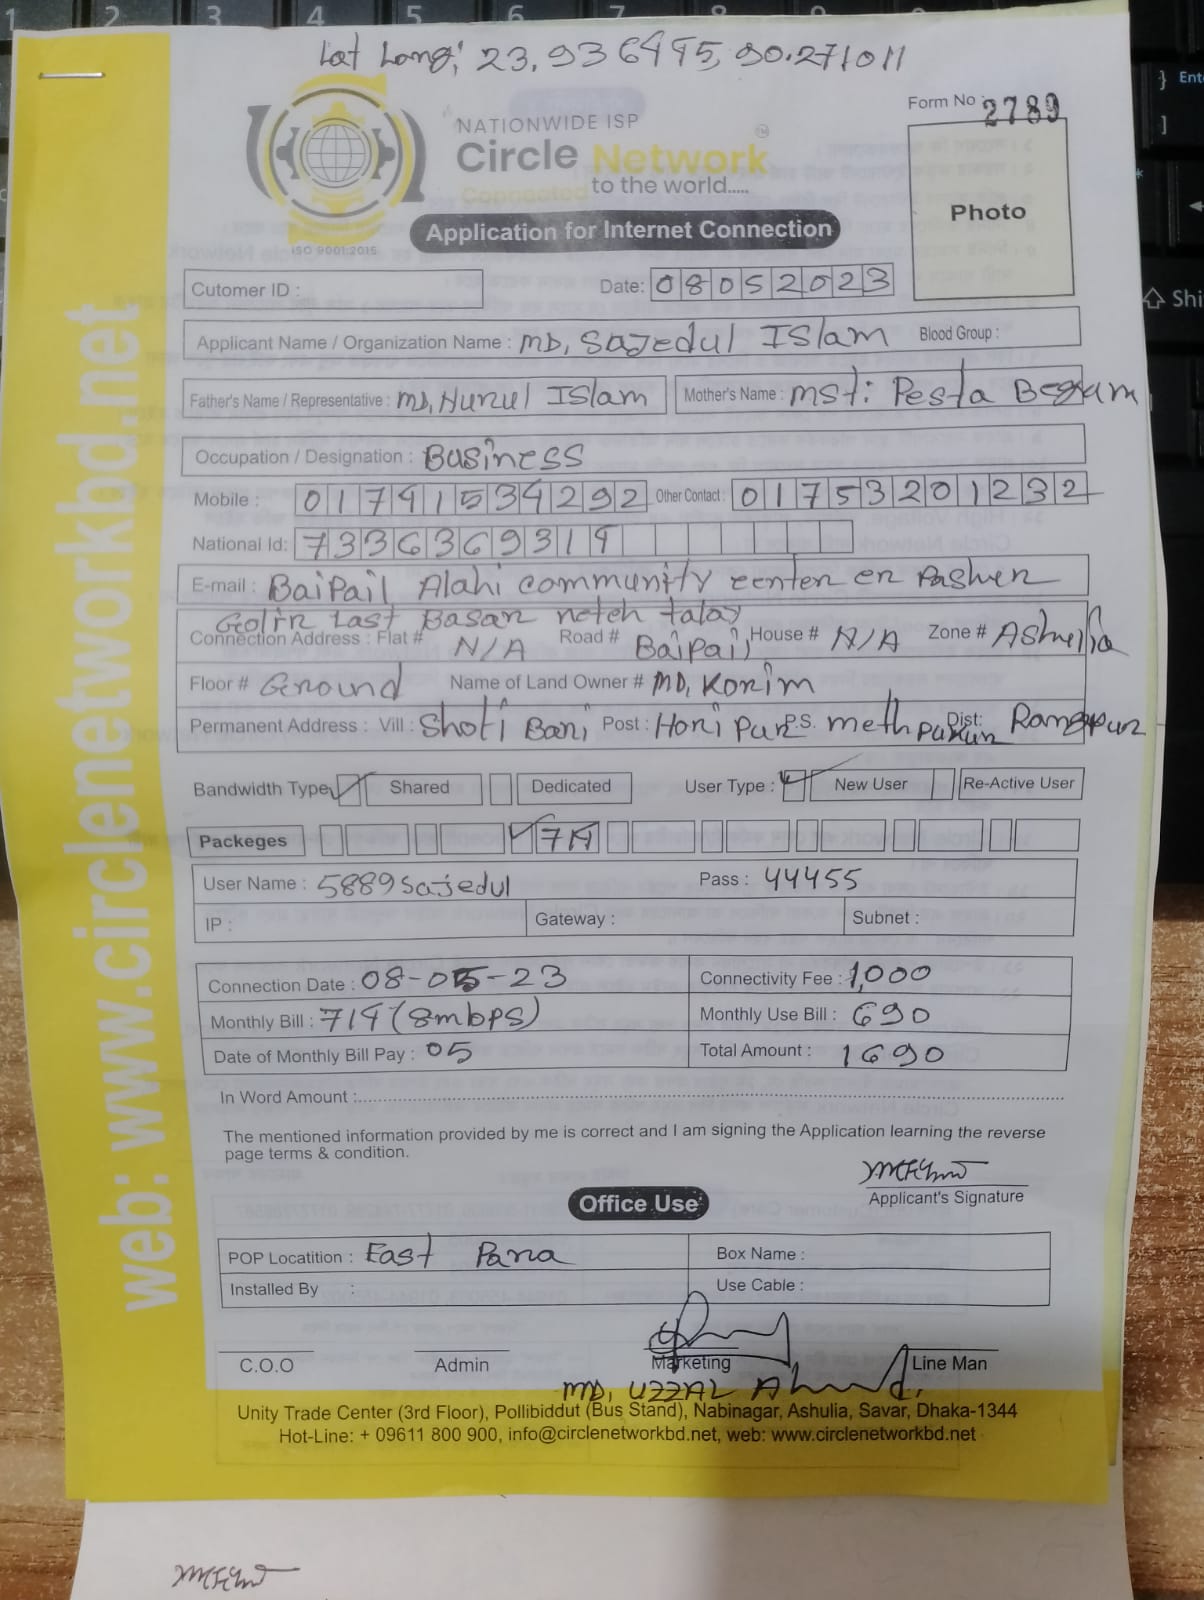 Lat Long; 23.936495, 90.271011
Form No : 2789
NATIONWIDE ISP
Circle Network
Connected to the world.....
ISO 9001:2015
Photo
Application for Internet Connection
Cutomer ID :
Date: 08052023
Applicant Name / Organization Name : MD, Sajedul Islam Blood Group :
Father's Name / Representative : MD, Nurul Islam Mother's Name : Mst: Pesta Begam
Occupation / Designation : Business
Mobile : 01741534292 Other Contact : 01753201232
National Id: 7336369314
E-mail : BaiPail Alahi community center er Pasher
Golir Last Basar neteh talay
Connection Address : Flat # N/A Road # Baipail House # N/A Zone # Ashulia
Floor # Ground Name of Land Owner # MD, Korim
Permanent Address : Vill : Shoti Bari Post : Hori Pur P.S. meth Pukur Dist: Rangpur
Bandwidth Type Shared Dedicated User Type : New User Re-Active User
Packeges 714
User Name : 5889sajedul Pass : 44455
IP : Gateway : Subnet :
Connection Date : 08-05-23 Connectivity Fee : 1,000
Monthly Bill : 714 (8mbps) Monthly Use Bill : 690
Date of Monthly Bill Pay : 05 Total Amount : 1690
In Word Amount :
The mentioned information provided by me is correct and I am signing the Application learning the reverse
page terms & condition.
Applicant's Signature
Office Use
POP Locatition : East Para Box Name :
Installed By : Use Cable :
C.O.O Admin Marketing Line Man
MD, UZZAL Ahmed.
Unity Trade Center (3rd Floor), Pollibiddut (Bus Stand), Nabinagar, Ashulia, Savar, Dhaka-1344
Hot-Line: + 09611 800 900, info@circlenetworkbd.net, web: www.circlenetworkbd.net
web: www.circlenetworkbd.net